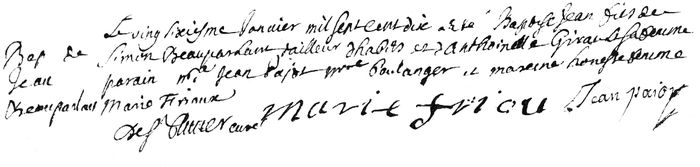 Le vingt sixiesme Janvier mil sept cent dix a esté Baptisé Jean fils de
Bap de Simon Beauparlant tailleur d'habits et d'Anthoinette Giraud sa femme
Jean parain Me Jean Paiot Me Boulanger et mareine honeste femme
Beauparlant Marie Friaux
curé Marie friou Jean paiot